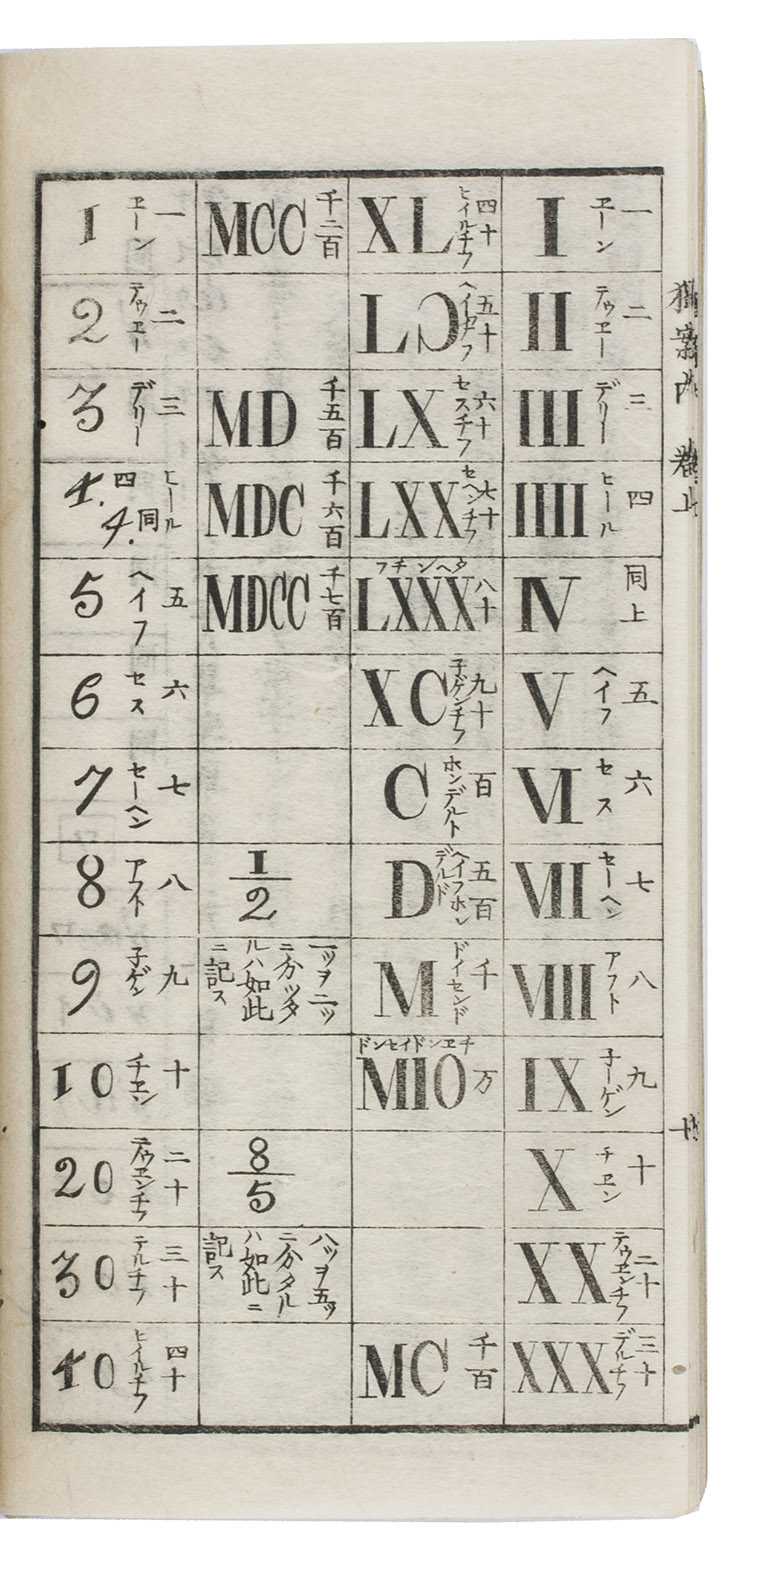 I 一 ヱーン
II 二 テウヱー
III 三 デリー
IIII 四 ヒール
IV 同上
V 五 ヘイフ
VI 六 セス
VII 七 セーヘン
VIII 八 アフト
IX 九 子ーゲン
X 十 チヱン
XX 二十 テウヱンチフ
XXX 三十 デルチフ
XL 四十 ヒイルチフ
LƆ 五十 ヘイフチフ
LX 六十 セスチフ
LXX 七十 セヘンチフ
LXXX 八十 タヘンチフ
XC 九十 子ゲンチフ
C 百 ホンデルト
D 五百 ヘイフホンデルド
M 千 ドイセンド
MIO 万 チヱンドイセンド
MC 千百
MCC 千二百
MD 千五百
MDC 千六百
MDCC 千七百
1/2
一ツヲ二ツ
ニ分ツタ
ルハ如此
ニ記ス
8/5
八ツヲ五ツ
ニ分タル
ハ如此ニ
記ス
1 一 ヱーン
2 二 テウヱー
3 三 デリー
4. 四 ヒール 4. 同
5 五 ヘイフ
6 六 セス
7 七 セーヘン
8 八 アフト
9 九 子ゲン
10 十 チヱン
20 二十 テウヱンチフ
30 三十 デルチフ
40 四十 ヒイルチフ